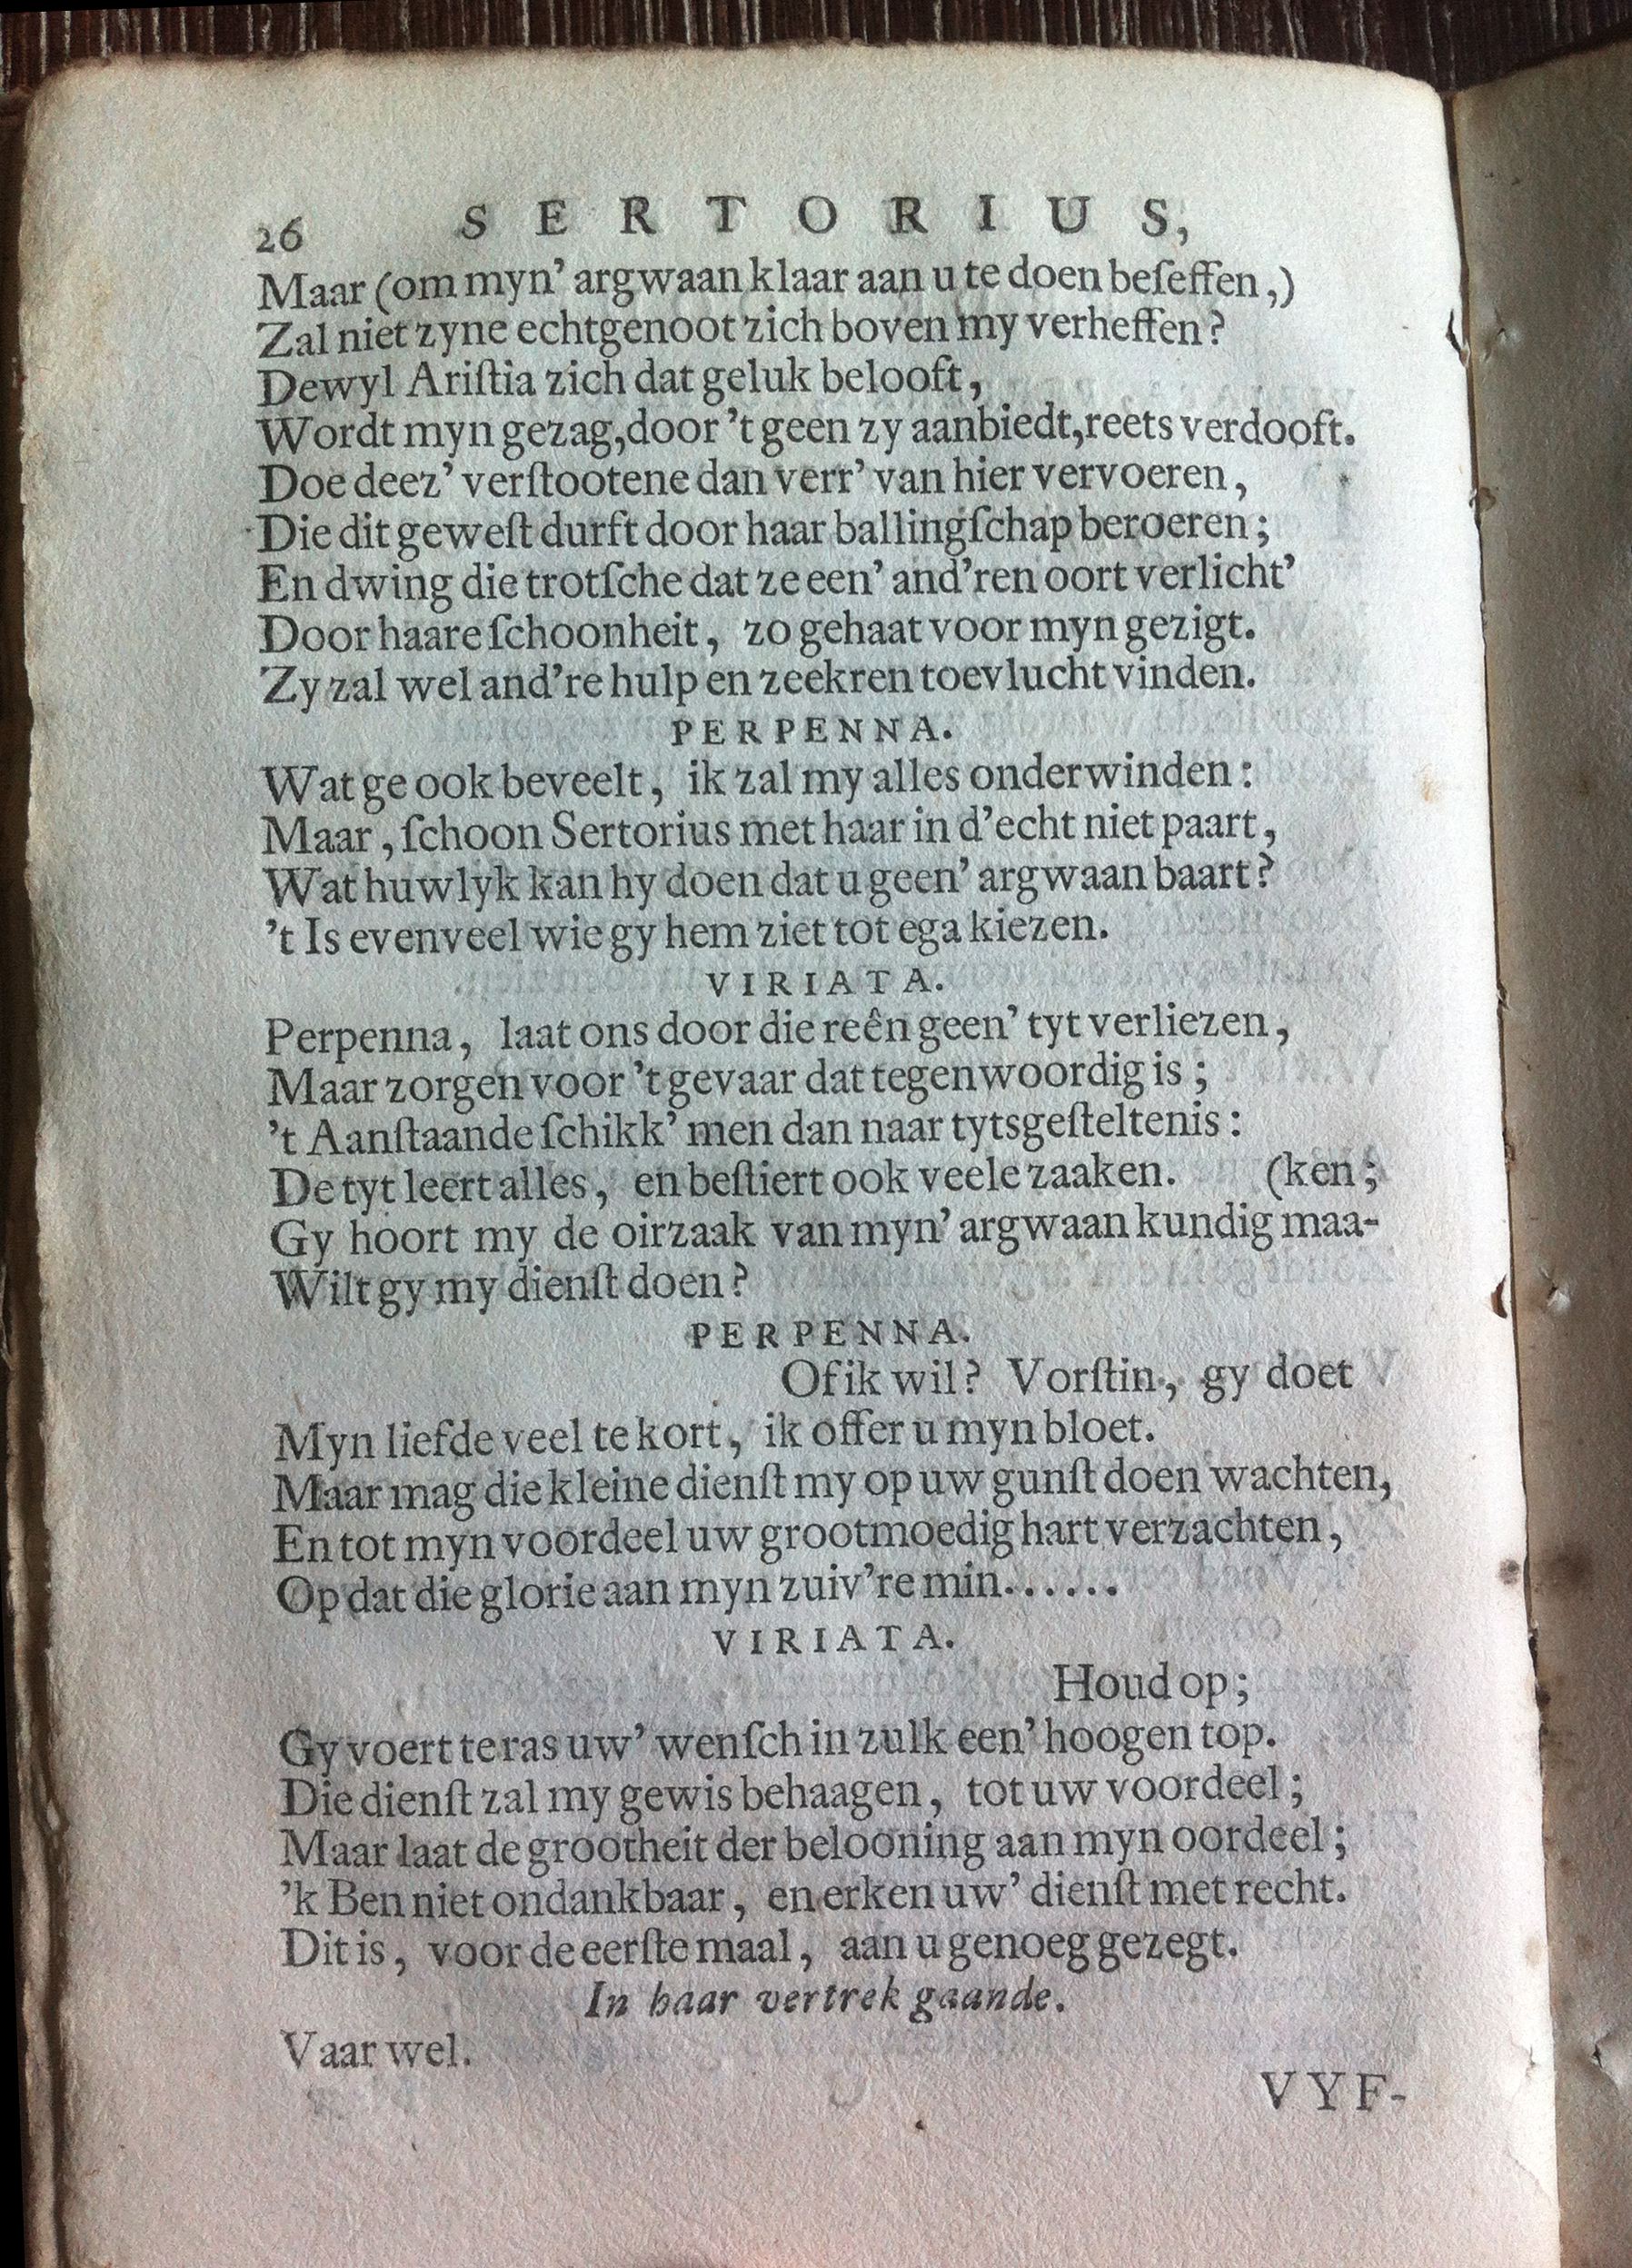 26 SERTORIUS,
Maar (om myn' argwaan klaar aan u te doen beſeffen,)
Zal niet zyne echtgenoot zich boven my verheffen?
Dewyl Ariſtia zich dat geluk belooft,
Wordt myn gezag, door 't geen zy aanbiedt, reets verdooft.
Doe deez' verſtootene dan verr' van hier vervoeren,
Die dit geweſt durft door haar ballingſchap beroeren;
En dwing die trotſche dat ze een' and'ren oort verlicht'
Door haare ſchoonheit, zo gehaat voor myn gezigt.
Zy zal wel and're hulp en zeekren toevlucht vinden.
PERPENNA.
Wat ge ook beveelt, ik zal my alles onderwinden:
Maar, ſchoon Sertorius met haar in d'echt niet paart,
Wat huwlyk kan hy doen dat u geen' argwaan baart?
't Is evenveel wie gy hem ziet tot ega kiezen.
VIRIATA.
Perpenna, laat ons door die reên geen' tyt verliezen,
Maar zorgen voor 't gevaar dat tegenwoordig is;
't Aanſtaande ſchikk' men dan naar tytsgeſteltenis:
De tyt leert alles, en beſtiert ook veele zaaken. (ken;
Gy hoort my de oirzaak van myn' argwaan kundig maa-
Wilt gy my dienſt doen?
PERPENNA.
Of ik wil? Vorſtin, gy doet
Myn liefde veel te kort, ik offer u myn bloet.
Maar mag die kleine dienſt my op uw gunſt doen wachten,
En tot myn voordeel uw grootmoedig hart verzachten,
Op dat die glorie aan myn zuiv're min......
VIRIATA.
Houd op;
Gy voert te ras uw' wenſch in zulk een' hoogen top.
Die dienſt zal my gewis behaagen, tot uw voordeel;
Maar laat de grootheit der belooning aan myn oordeel;
'k Ben niet ondankbaar, en erken uw' dienſt met recht.
Dit is, voor de eerſte maal, aan u genoeg gezegt.
In haar vertrek gaande.
Vaar wel.
VYF-